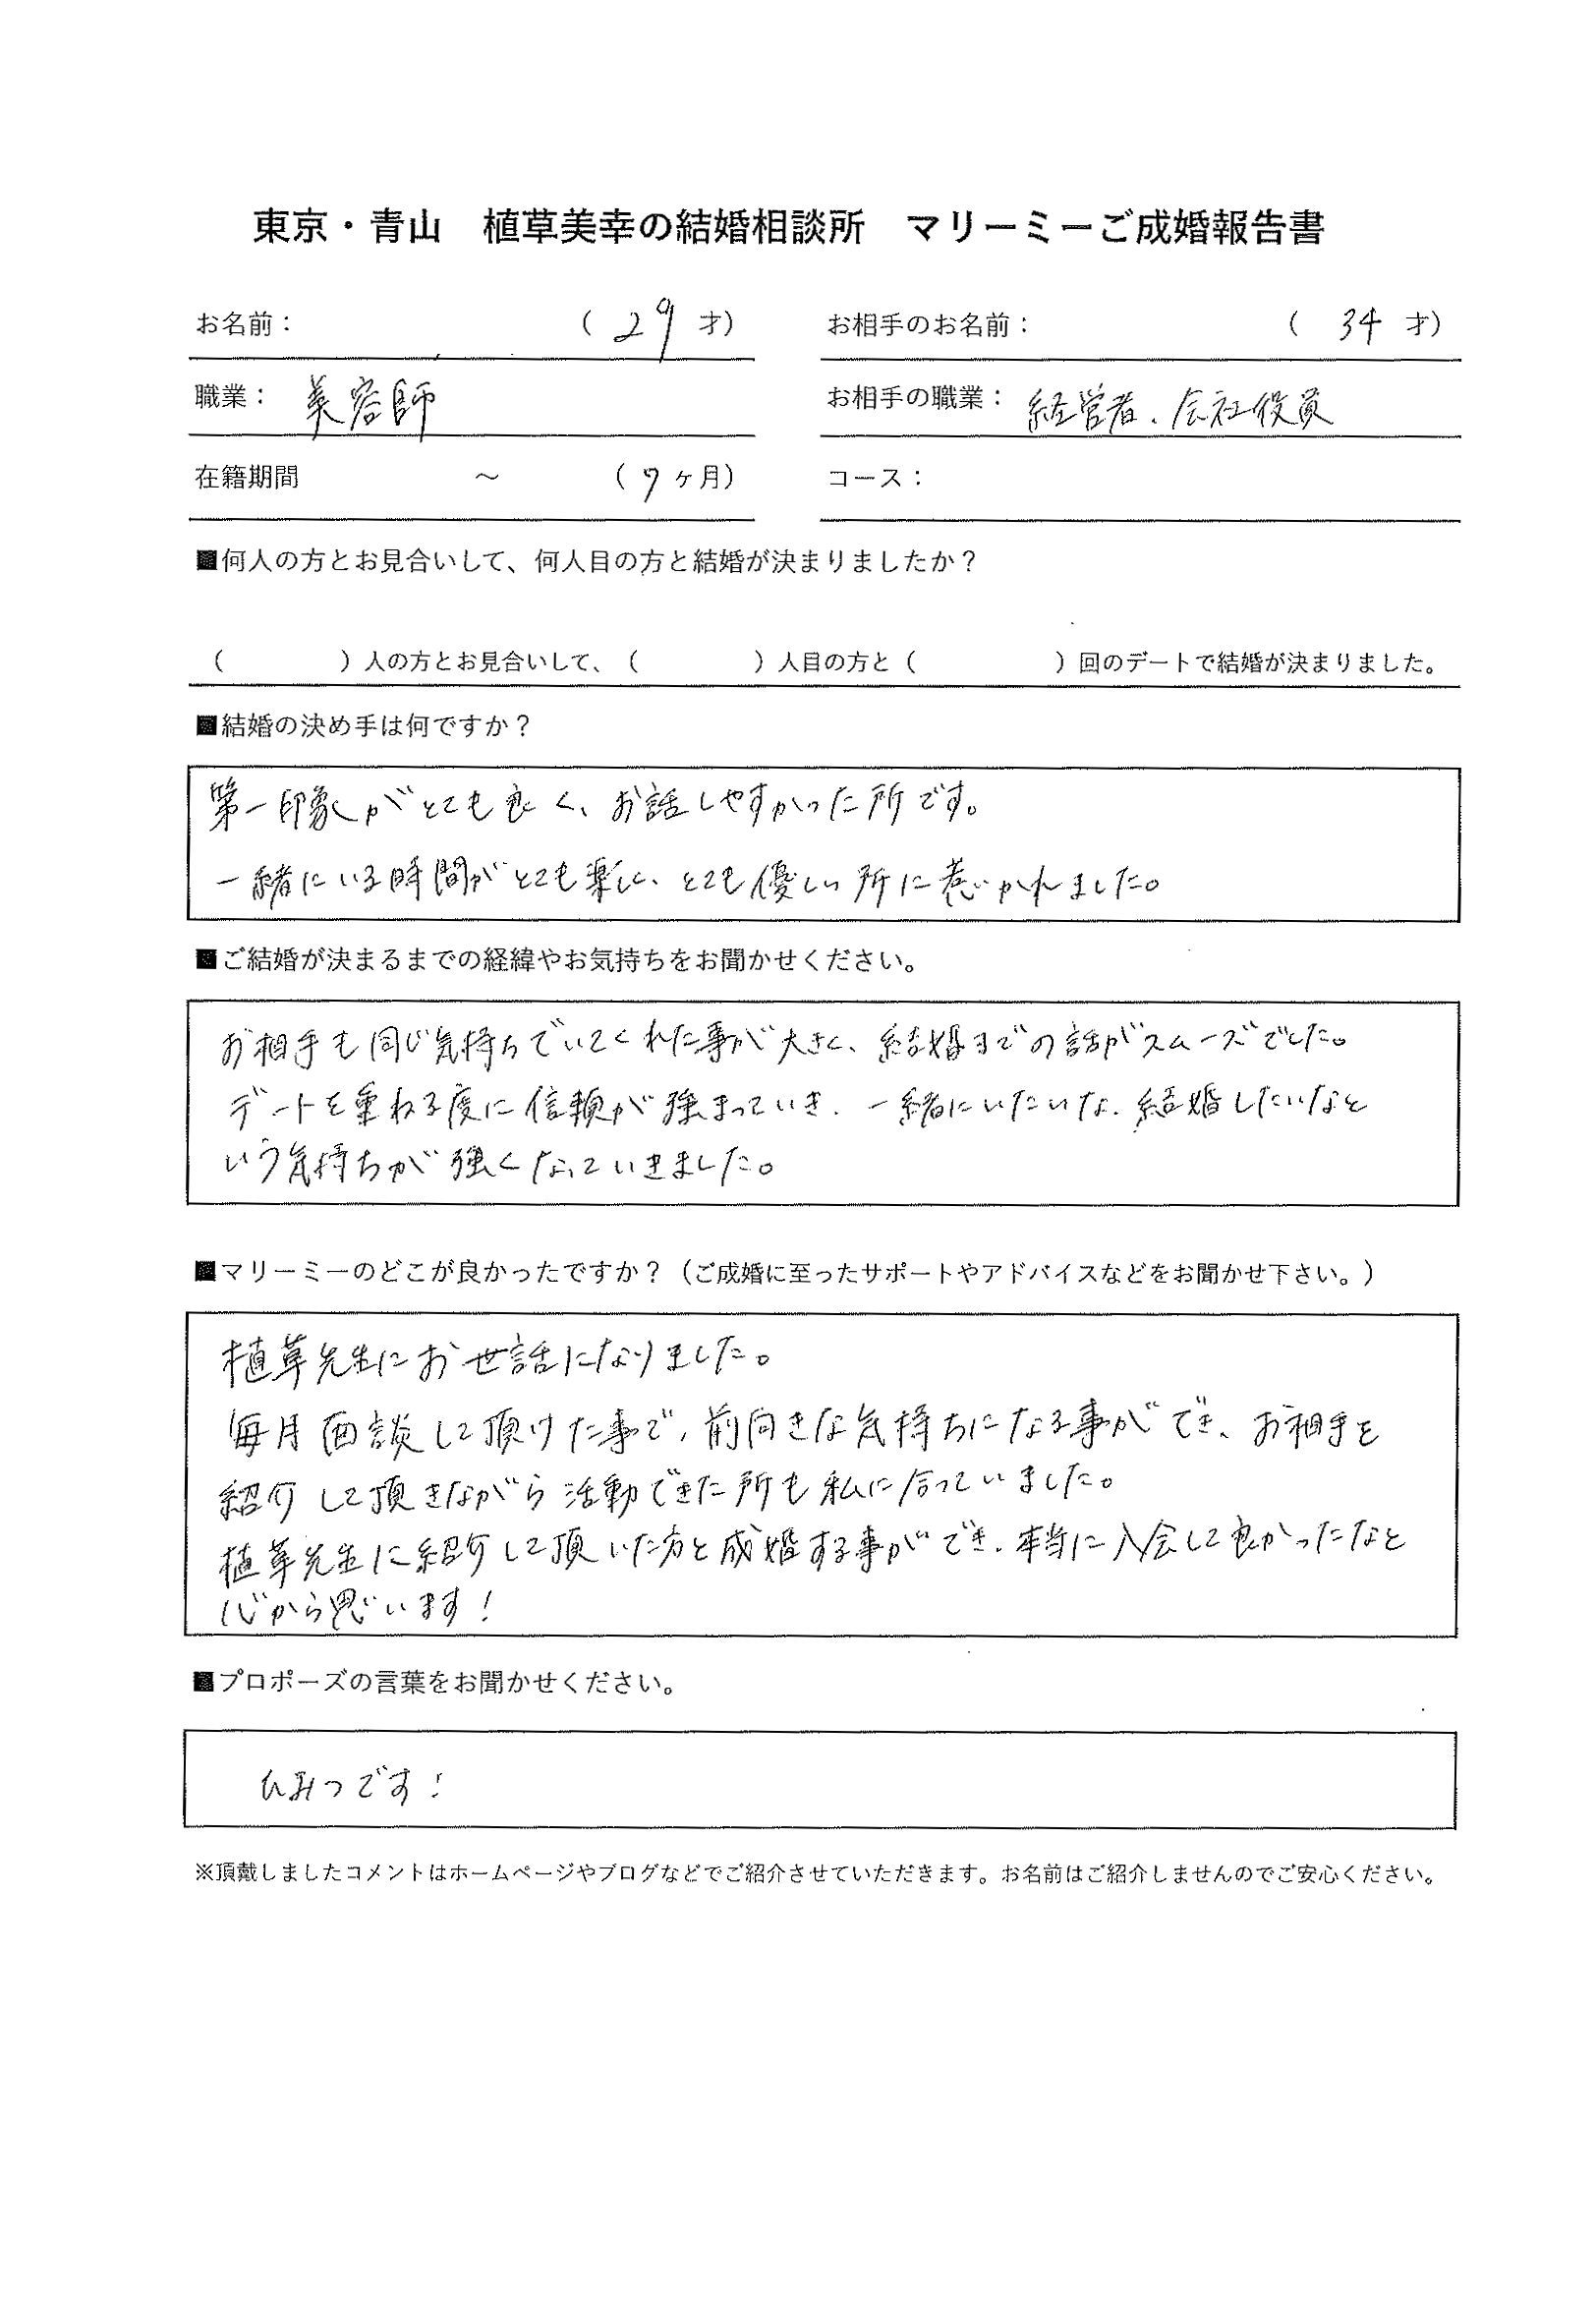 東京・青山　植草美幸の結婚相談所　マリーミーご成婚報告書
お名前：　（ 29 才）　お相手のお名前：　（ 34 才）
職業：美容師　お相手の職業：経営者、会社役員
在籍期間　～　（ 7 ヶ月）　コース：
■何人の方とお見合いして、何人目の方と結婚が決まりましたか？
（　　）人の方とお見合いして、（　　）人目の方と（　　）回のデートで結婚が決まりました。
■結婚の決め手は何ですか？
第一印象がとても良く、お話しやすかった所です。
一緒にいる時間がとても楽しく、とても優しい所に惹かれました。
■ご結婚が決まるまでの経緯やお気持ちをお聞かせください。
お相手も同じ気持ちでいてくれた事が大きく、結婚までの話がスムーズでした。
デートを重ねる度に信頼が強まっていき、一緒にいたいな、結婚したいなと
いう気持ちが強くなっていきました。
■マリーミーのどこが良かったですか？（ご成婚に至ったサポートやアドバイスなどをお聞かせ下さい。）
植草先生にお世話になりました。
毎月面談して頂けた事で、前向きな気持ちになる事ができ、お相手を
紹介して頂きながら活動できた所も私に合っていました。
植草先生に紹介して頂いた方と成婚する事ができ、本当に入会して良かったなと
心から思います！
■プロポーズの言葉をお聞かせください。
ひみつです！
※頂戴しましたコメントはホームページやブログなどでご紹介させていただきます。お名前はご紹介しませんのでご安心ください。